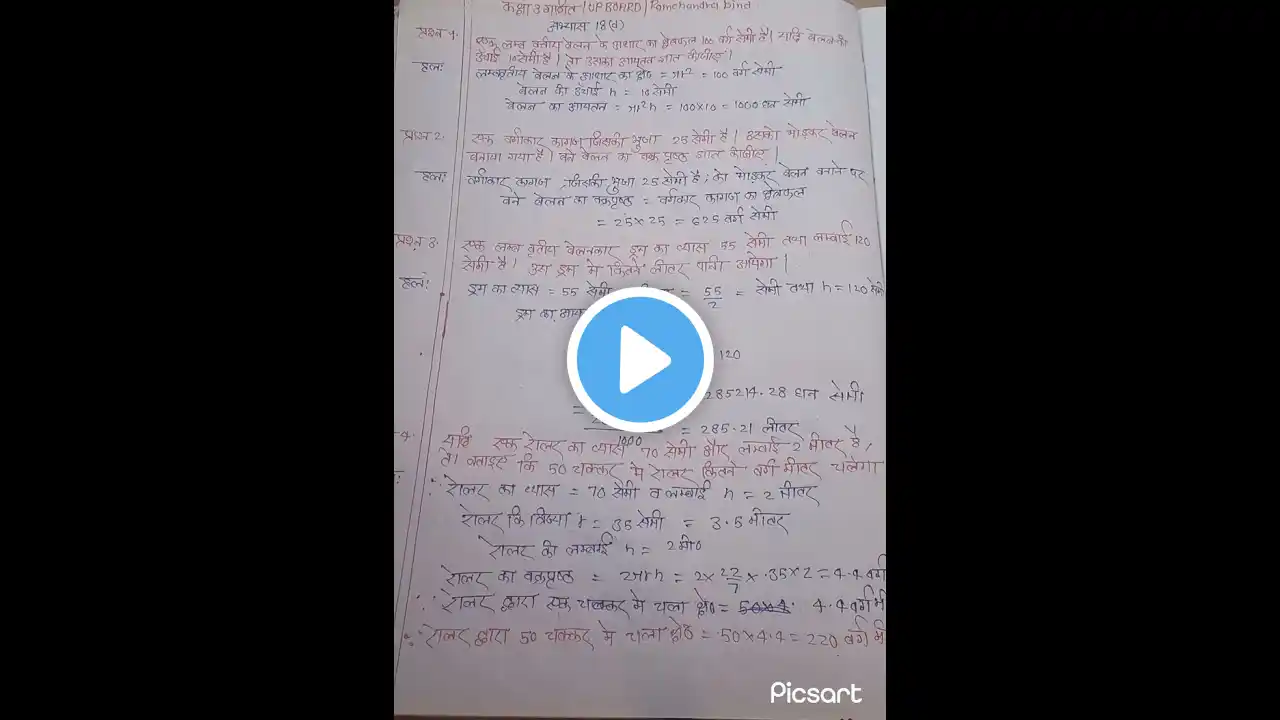 कक्षा 8 गणित (UP BOARD) Ramchandra bind
अभ्यास 18(d)
प्रश्न 1. एक लम्ब वृत्तीय बेलन के आधार का क्षेत्रफल 100 वर्ग सेमी है। यदि बेलन की
ऊँचाई 10 सेमी है। तो उसका आयतन ज्ञात कीजिए।
हलः लम्बवृत्तीय बेलन के आधार का क्षे० = πr² = 100 वर्ग सेमी
बेलन की ऊँचाई h = 10 सेमी
बेलन का आयतन = πr²h = 100×10 = 1000 घन सेमी
प्रश्न 2. एक वर्गाकार कागज जिसकी भुजा 25 सेमी है। उसको मोड़कर बेलन
बनाया गया है। बने बेलन का वक्र पृष्ठ ज्ञात कीजिए।
हलः वर्गाकार कागज, जिसकी भुजा 25 सेमी है; को मोड़कर बेलन बनाने पर
बने बेलन का वक्रपृष्ठ = वर्गाकार कागज का क्षेत्रफल
= 25×25 = 625 वर्ग सेमी
प्रश्न 3. एक लम्ब वृत्तीय बेलनाकार ड्रम का व्यास 55 सेमी तथा लम्बाई 120
सेमी है। उस ड्रम में कितने लीटर पानी आयेगा।
हलः ड्रम का व्यास = 55 सेमी = 55/2 = सेमी तथा h = 120 सेमी
ड्रम का
120
= 285214.28 घन सेमी
1000 = 285.21 लीटर
4. यदि एक रोलर का व्यास 70 सेमी और लम्बाई 2 मीटर है,
तो बताइए कि 50 चक्कर में रोलर कितने वर्ग मीटर चलेगा
∵ रोलर का व्यास = 70 सेमी व लम्बाई h = 2 मीटर
रोलर कि त्रिज्या r = 35 सेमी = 3.5 मीटर
रोलर की लम्बाई h = 2 मी०
रोलर का वक्रपृष्ठ = 2πrh = 2×22/7×.35×2 = 4.4 वर्ग
∵ रोलर द्वारा एक चक्कर में चला क्षे० = 4.4 वर्ग मी
∴ रोलर द्वारा 50 चक्कर में चला क्षे० = 50×4.4 = 220 वर्ग मी
Picsart